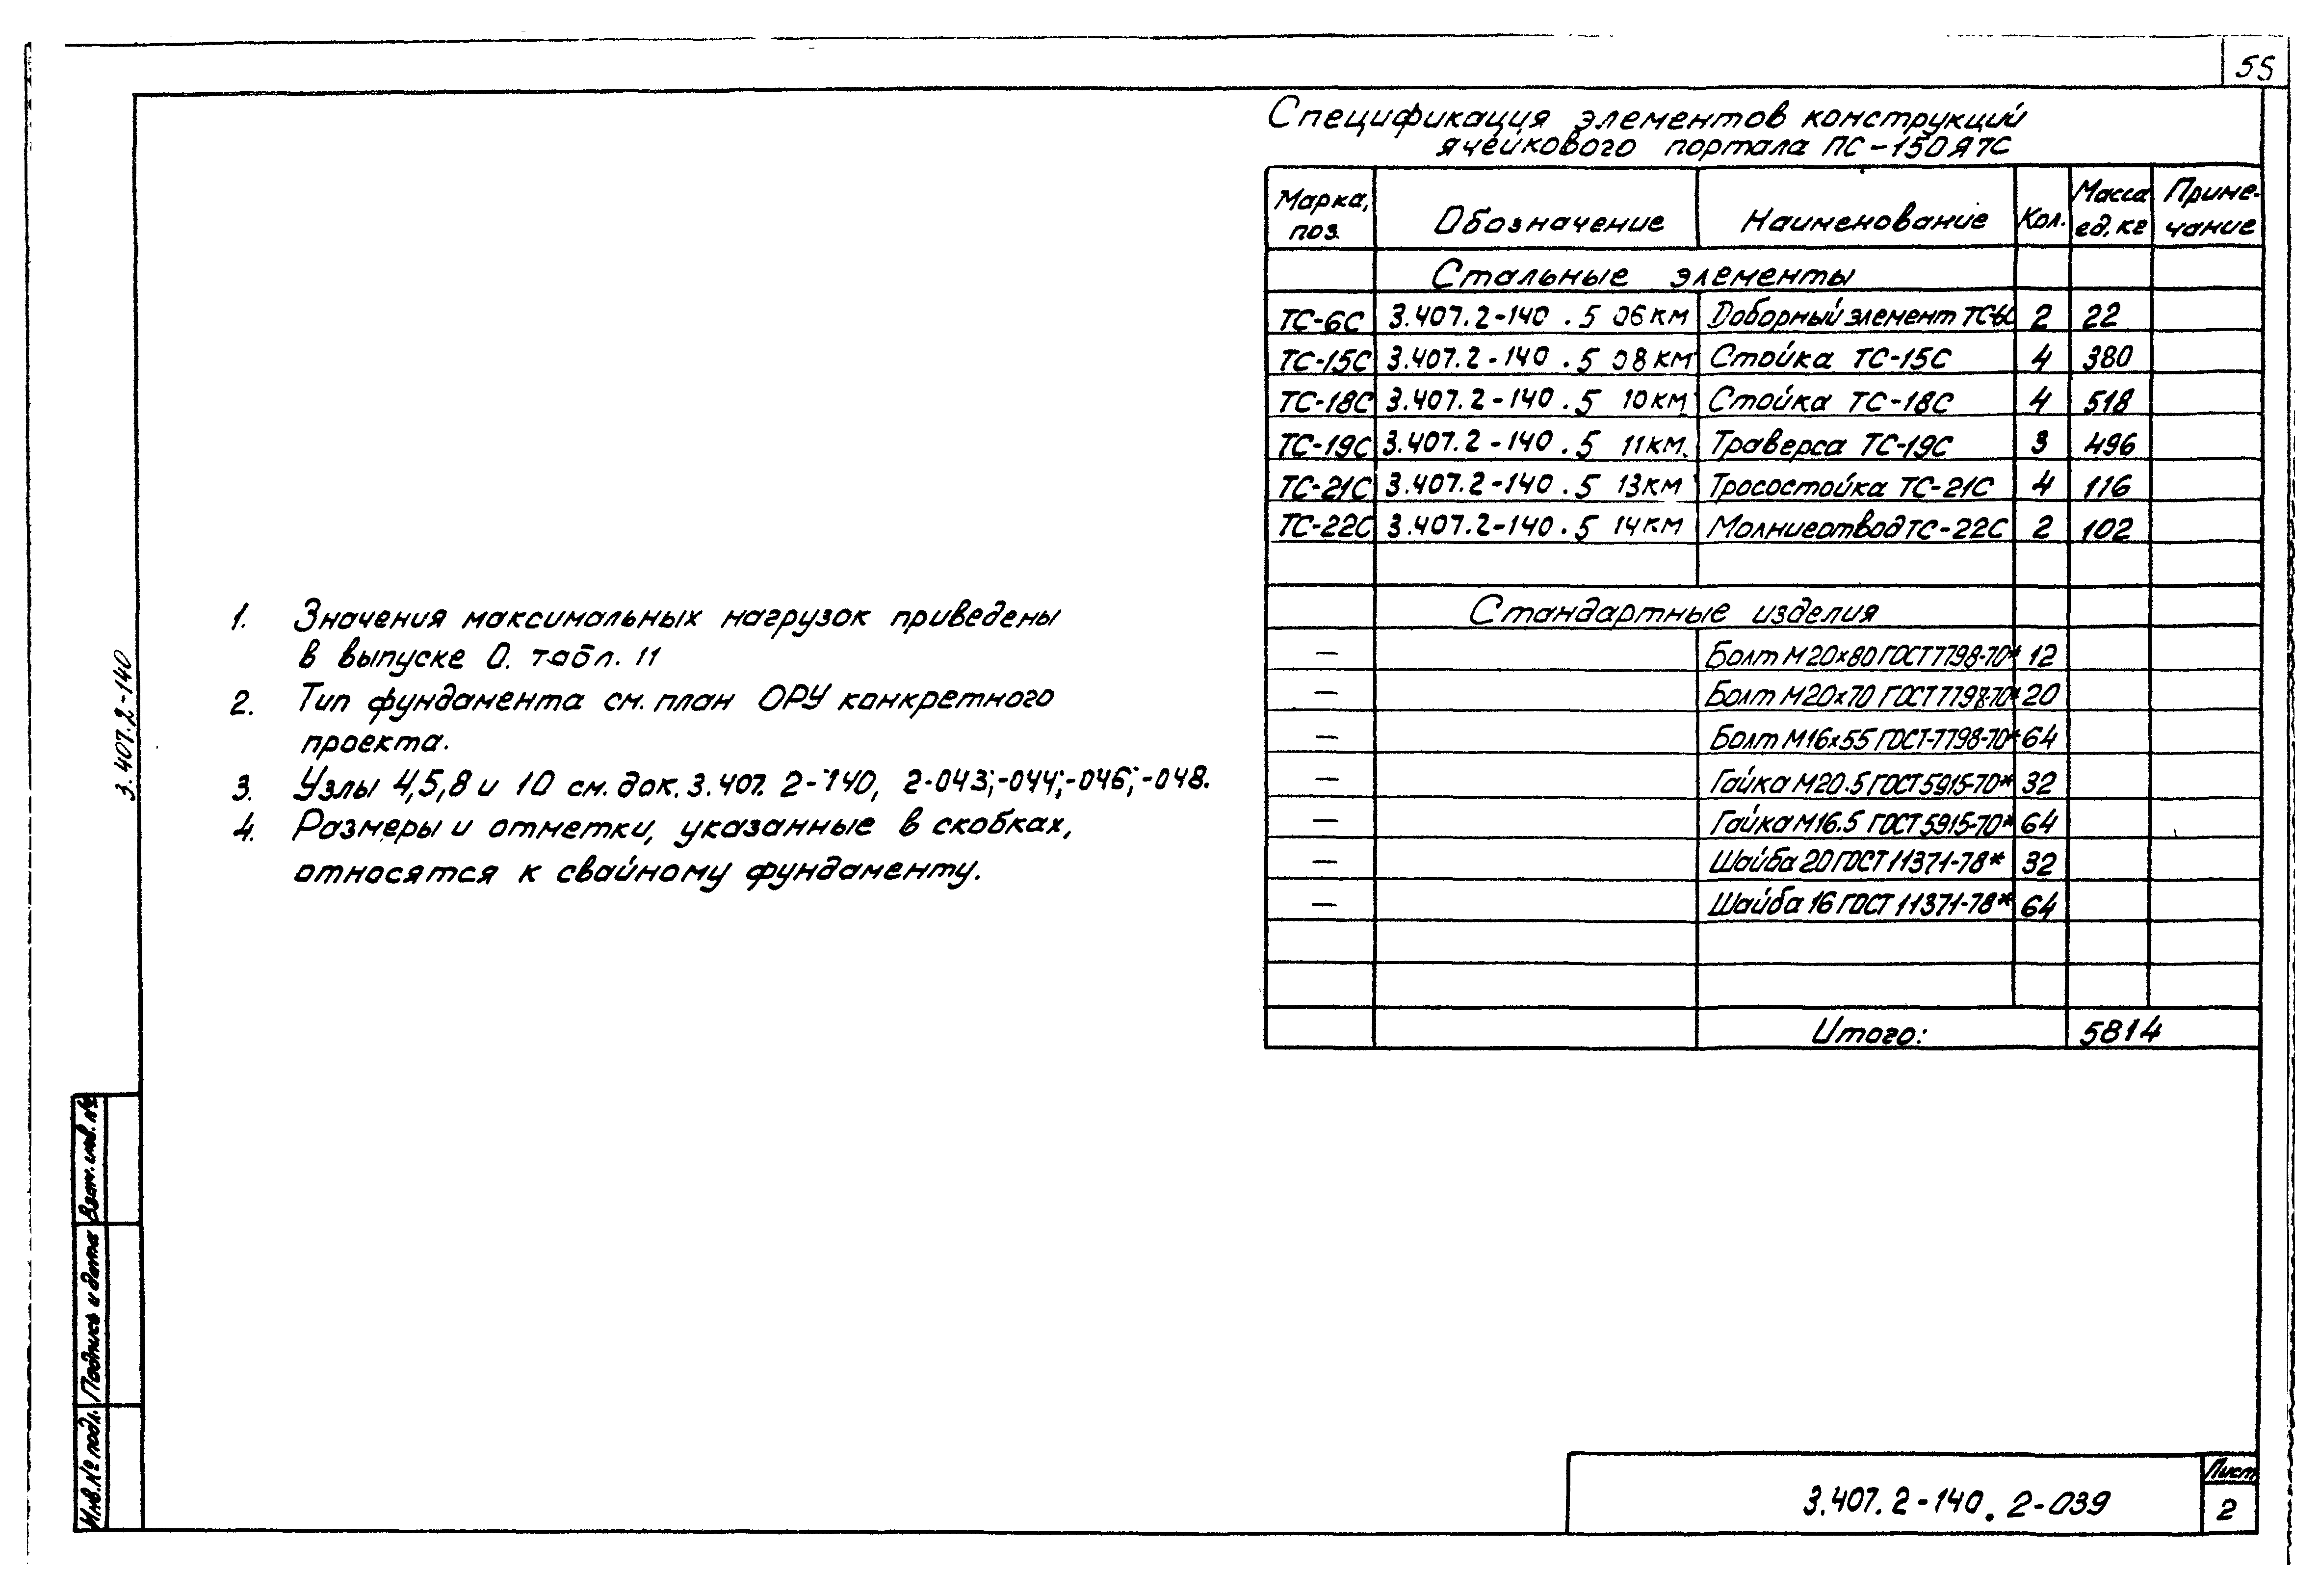 55
Спецификация элементов конструкций
ячейкового портала ПС-150Я7С
Марка, поз. Обозначение Наименование Кол. Масса ед. кг Примечание
Стальные элементы
ТС-6С 3.407.2-140 .5 06КМ Доборный элемент ТС-6С 2 22
ТС-15С 3.407.2-140 .5 08КМ Стойка ТС-15С 4 380
ТС-18С 3.407.2-140 .5 10КМ Стойка ТС-18С 4 518
ТС-19С 3.407.2-140 .5 11КМ. Траверса ТС-19С 3 496
ТС-21С 3.407.2-140 .5 13КМ Тросостойка ТС-21С 4 116
ТС-22С 3.407.2-140 .5 14КМ Молниеотвод ТС-22С 2 102
Стандартные изделия
— Болт М20×80 ГОСТ 7798-70* 12
— Болт М20×70 ГОСТ 7798-70* 20
— Болт М16×55 ГОСТ-7798-70* 64
— Гайка М20.5 ГОСТ 5915-70* 32
— Гайка М16.5 ГОСТ 5915-70* 64
— Шайба 20 ГОСТ 11371-78* 32
— Шайба 16 ГОСТ 11371-78* 64
Итого: 5814
1. Значения максимальных нагрузок приведены
в выпуске 0. табл. 11
2. Тип фундамента см. план ОРУ конкретного
проекта.
3. Узлы 4,5,8 и 10 см. док. 3.407. 2-140, 2-043;-044;-046;-048.
4. Размеры и отметки, указанные в скобках,
относятся к свайному фундаменту.
3.407.2-140
Взам. инв. №
Подпись и дата
Инв. № подл.
3.407.2-140. 2-039
Лист
2